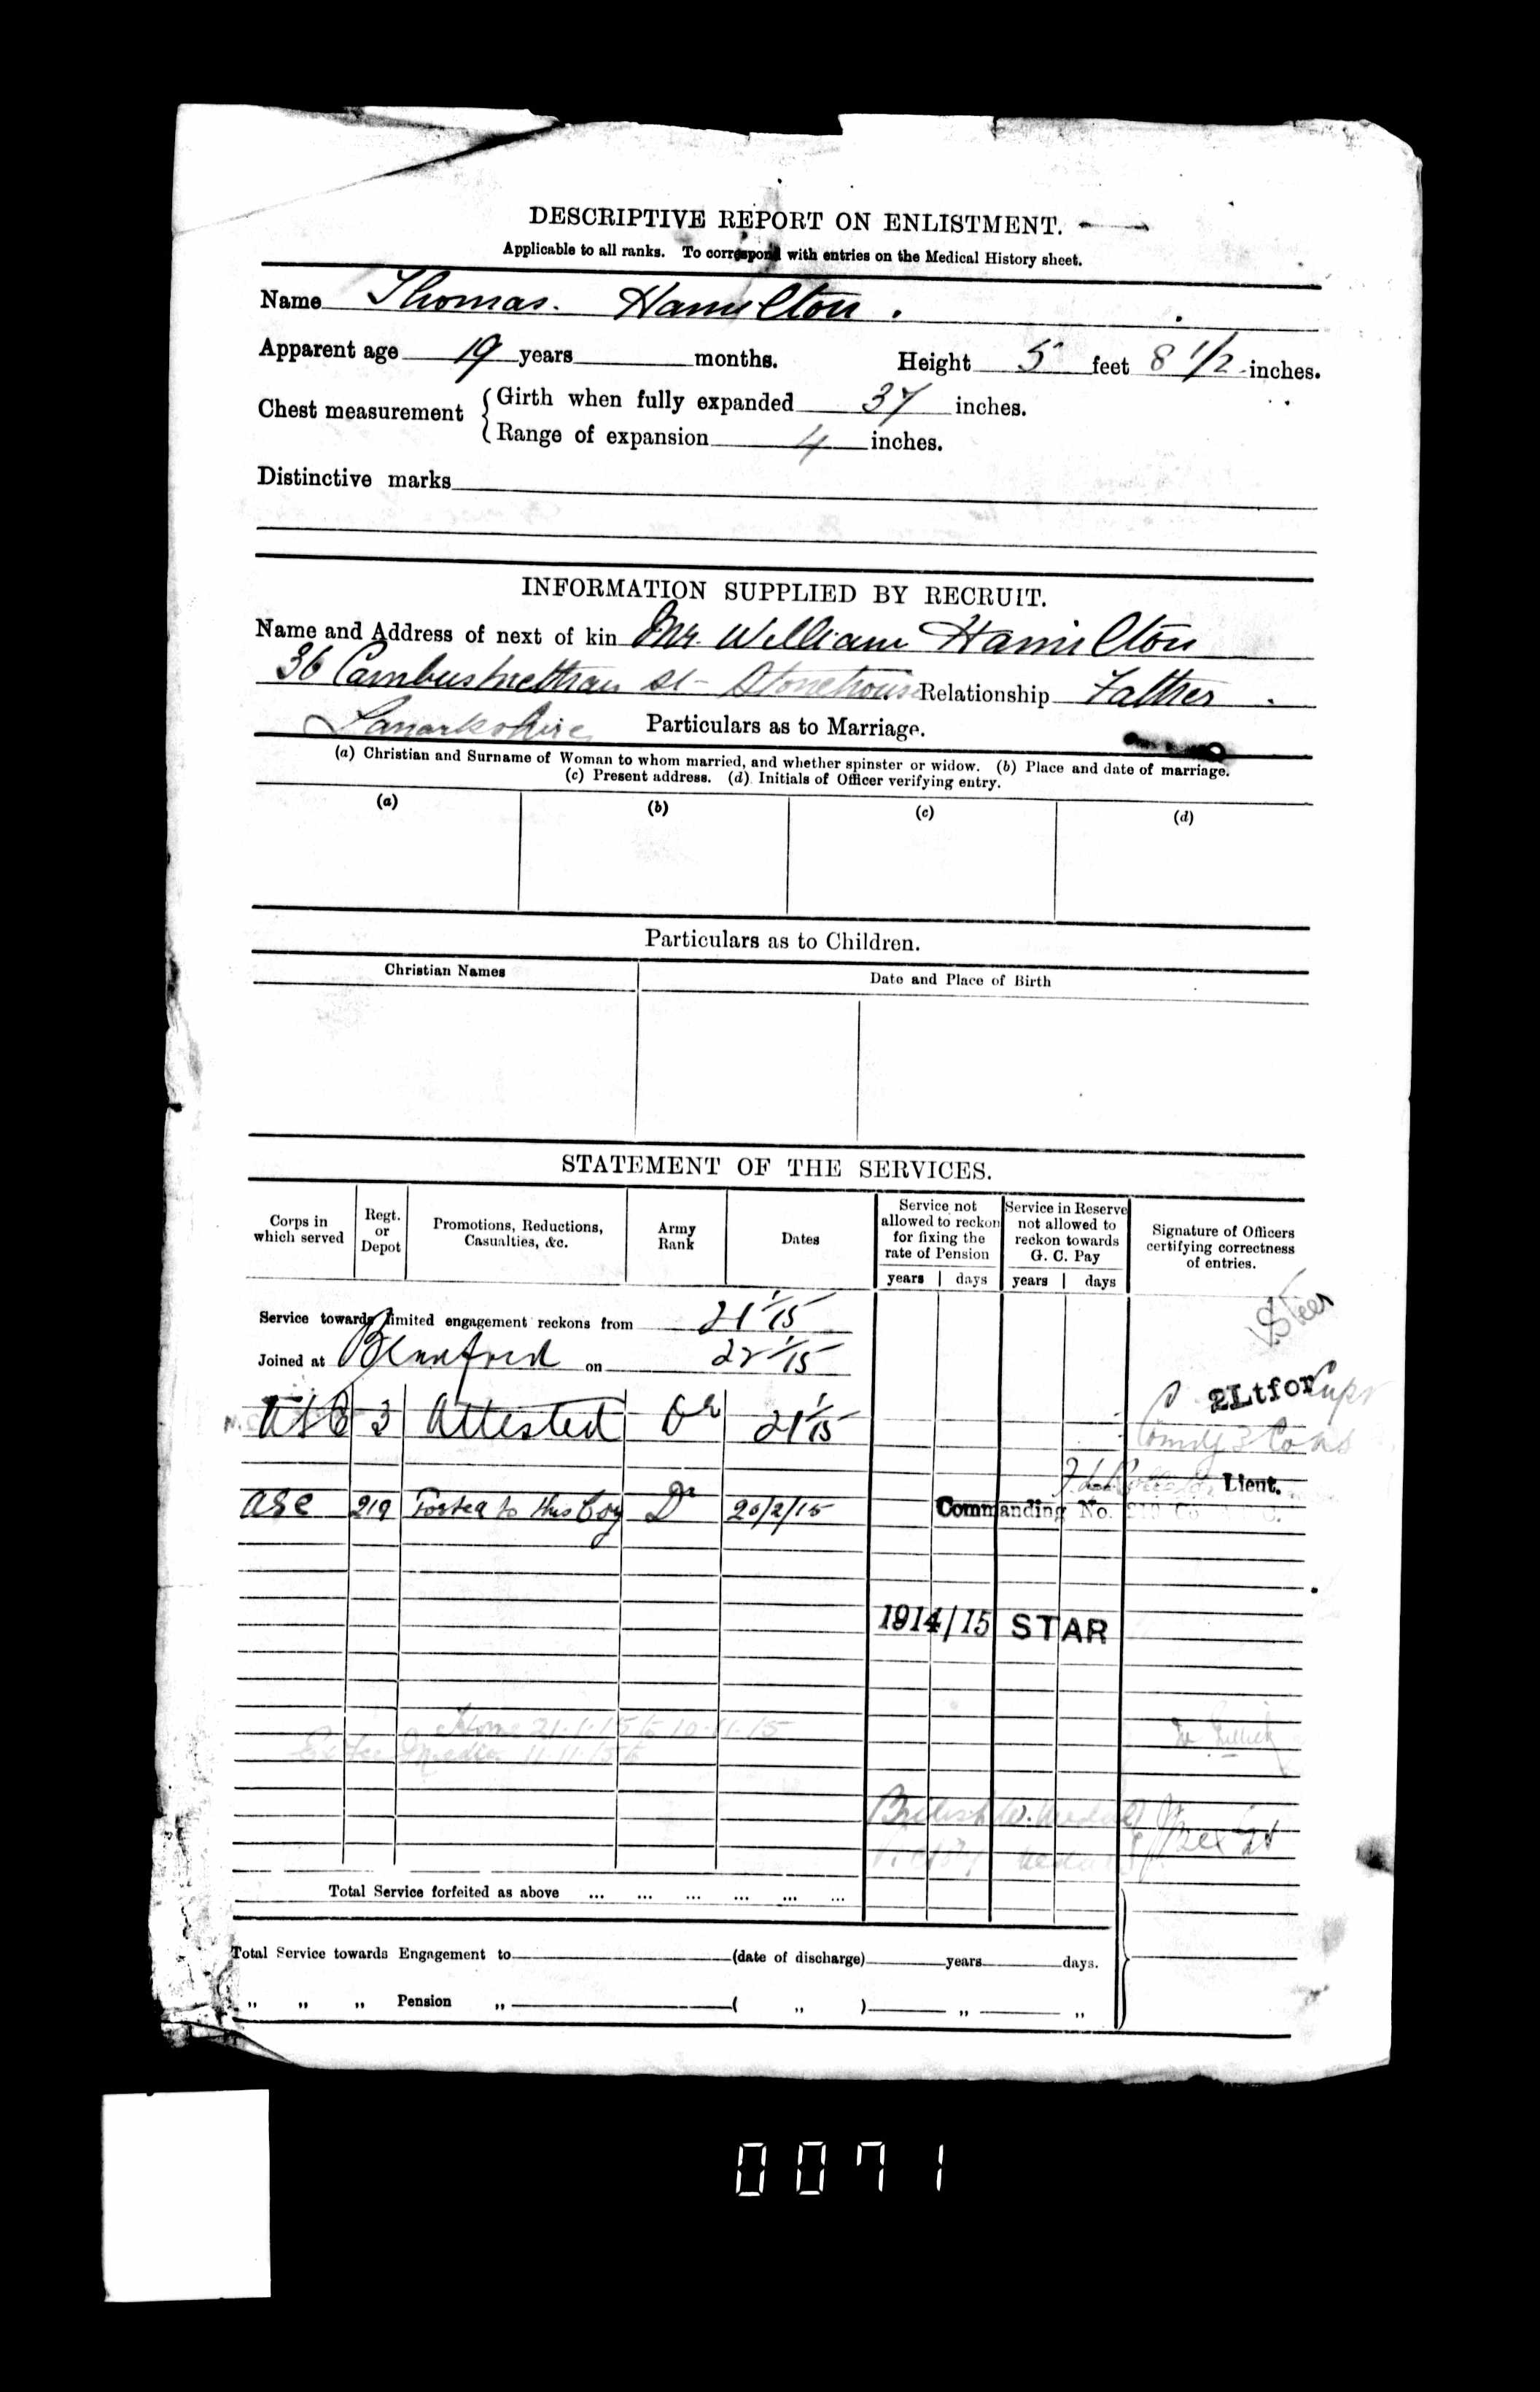 DESCRIPTIVE REPORT ON ENLISTMENT.
Applicable to all ranks. To correspond with entries on the Medical History sheet.
Name Thomas. Hamilton.
Apparent age 19 years months. Height 5 feet 8 1/2 inches.
Chest measurement { Girth when fully expanded 37 inches.
{ Range of expansion 4 inches.
Distinctive marks
INFORMATION SUPPLIED BY RECRUIT.
Name and Address of next of kin Mr. William Hamilton
36 Cambusnethan St - Stonehouse Relationship Father.
Lanarkshire Particulars as to Marriage.
(a) Christian and Surname of Woman to whom married, and whether spinster or widow. (b) Place and date of marriage.
(c) Present address. (d) Initials of Officer verifying entry.
(a) (b) (c) (d)
Particulars as to Children.
Christian Names Date and Place of Birth
STATEMENT OF THE SERVICES.
Corps in which served Regt. or Depot Promotions, Reductions, Casualties, &c. Army Rank Dates Service not allowed to reckon for fixing the rate of Pension Service in Reserve not allowed to reckon towards G. C. Pay Signature of Officers certifying correctness of entries.
years days years days
Service towards limited engagement reckons from 21/1/15
Joined at on 22/1/15
2Lt for
ASC 3 Attested Dr 21/1/15
Lieut.
ASC 219 Posted to this Coy Dr 20/2/15 Commanding No. 219 Co
1914/15 STAR
Home 21.1.15 to 10.11.15
11.11.15 to
British W. Medal
Victory Medal
Total Service forfeited as above ... ... ... ... ... ...
Total Service towards Engagement to (date of discharge) years days.
" " " Pension " ( " ) " "
0071